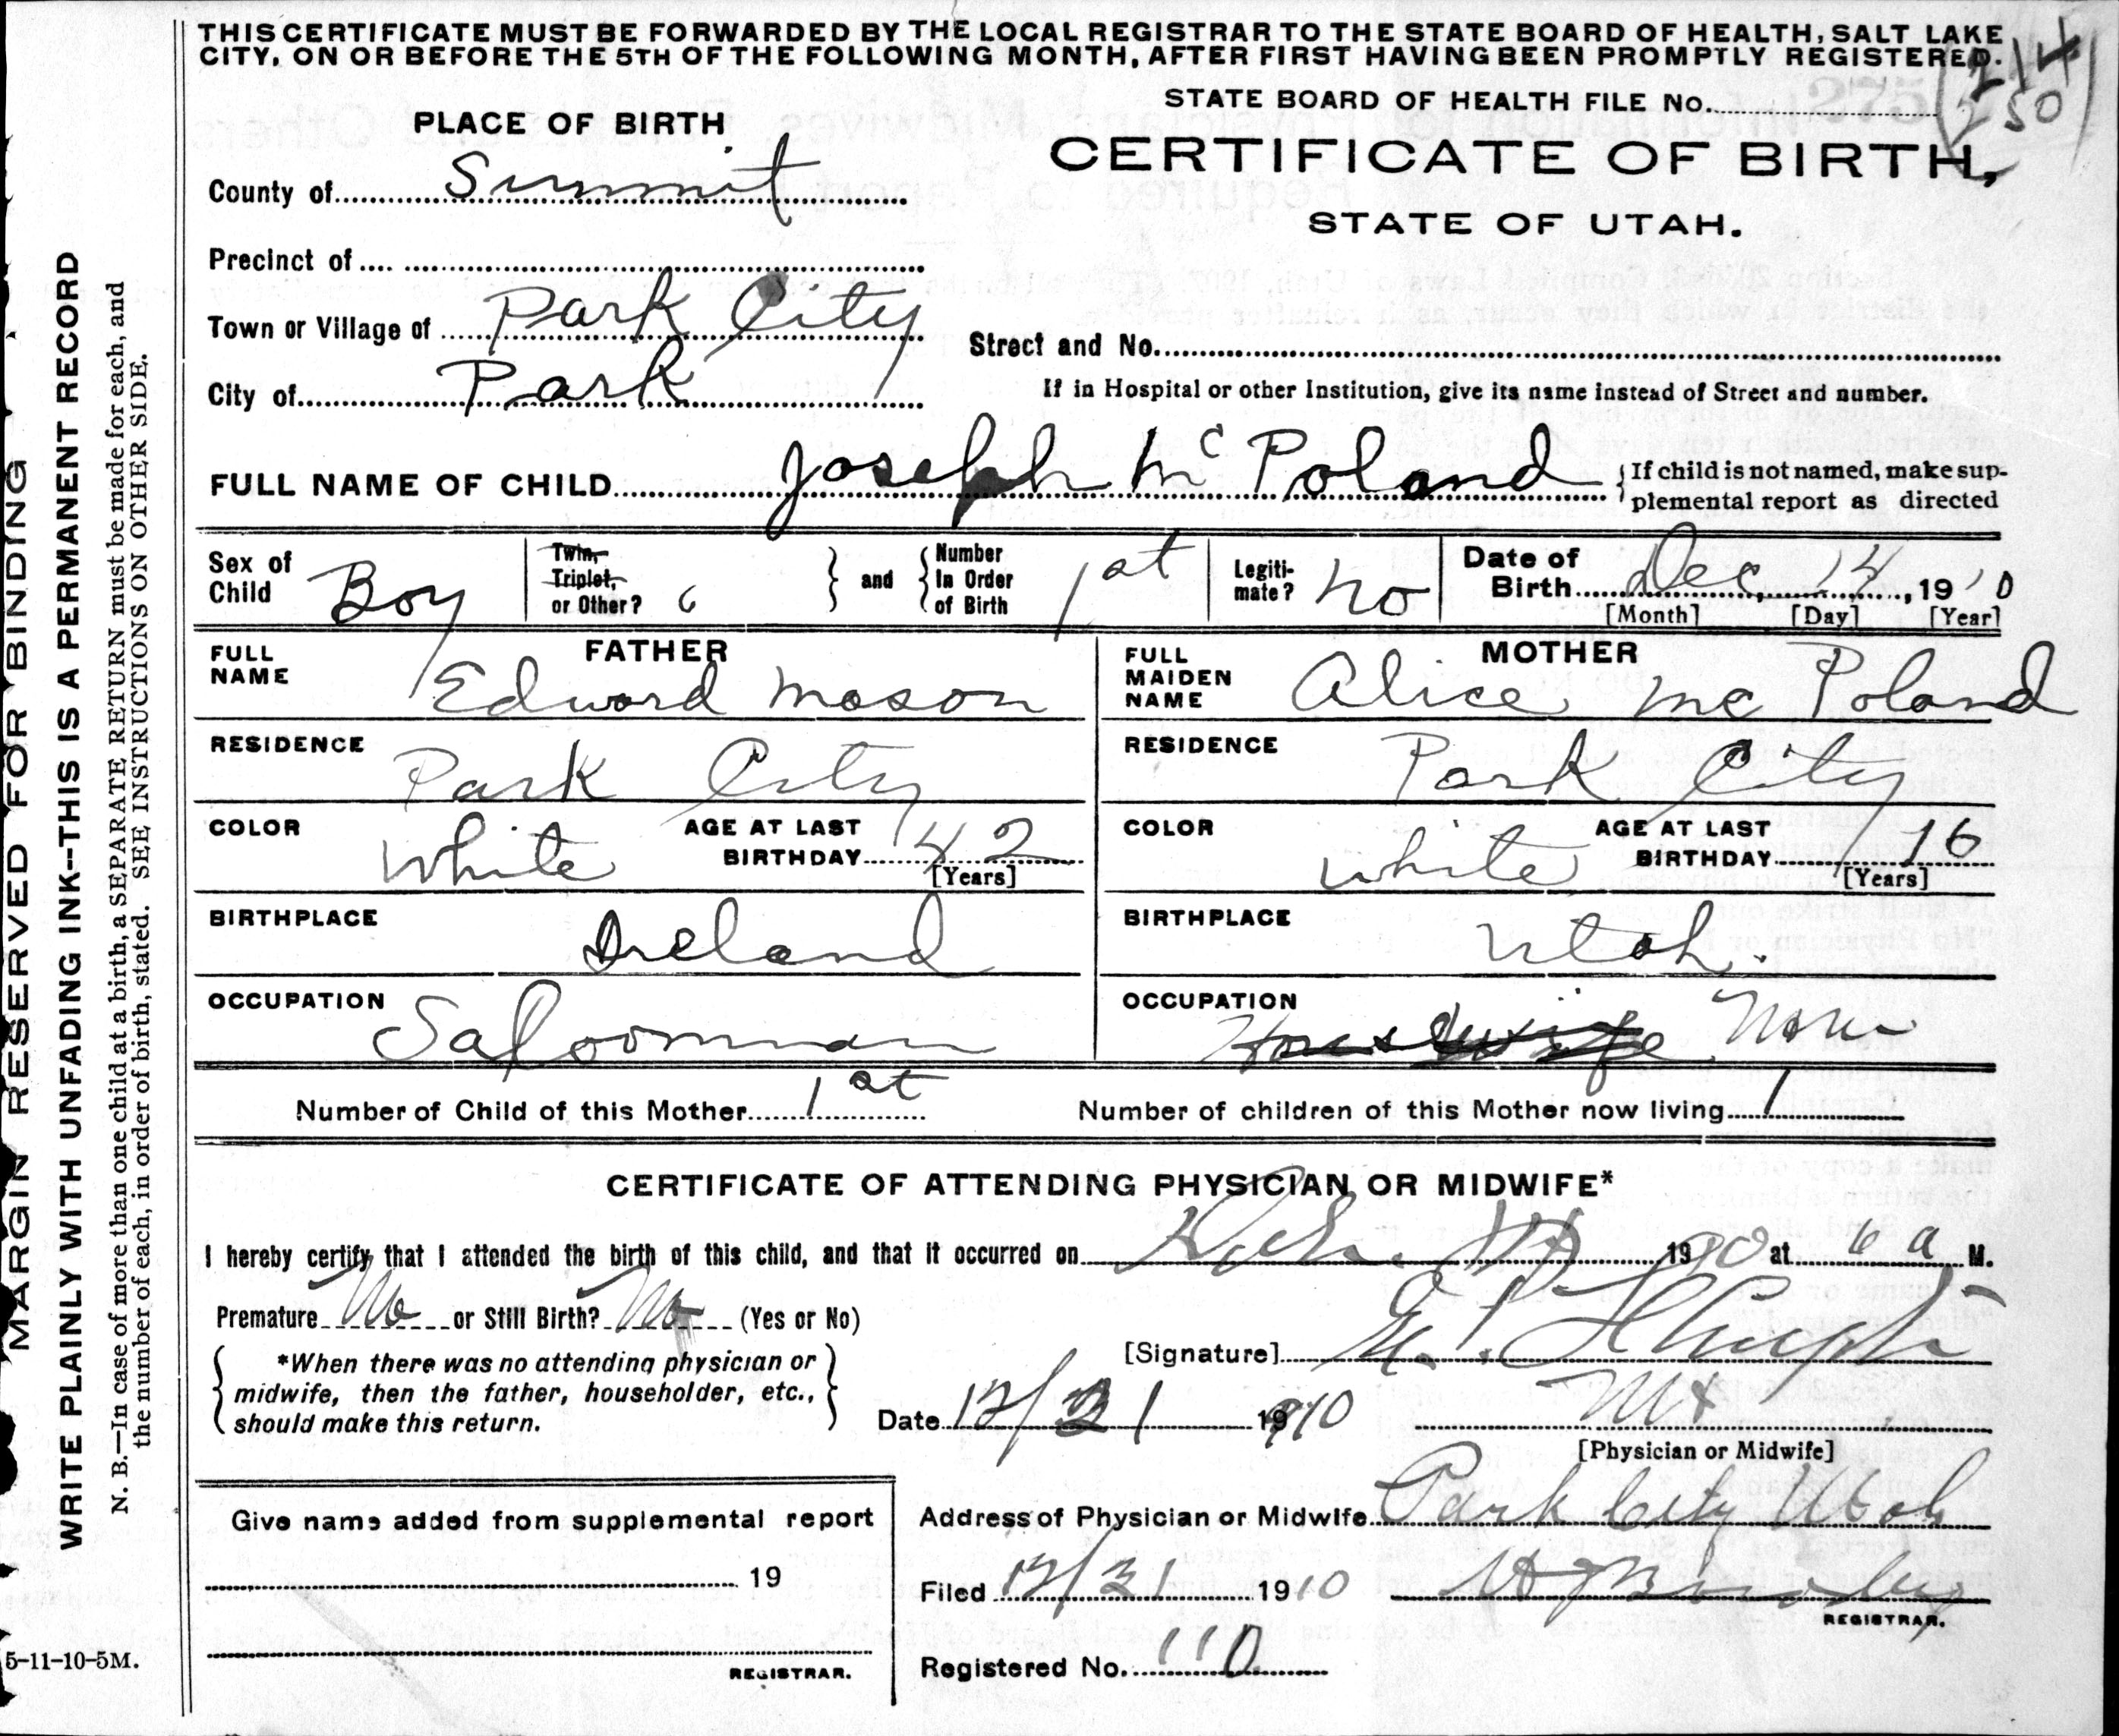 THIS CERTIFICATE MUST BE FORWARDED BY THE LOCAL REGISTRAR TO THE STATE BOARD OF HEALTH, SALT LAKE
CITY, ON OR BEFORE THE 5TH OF THE FOLLOWING MONTH, AFTER FIRST HAVING BEEN PROMPTLY REGISTERED.
214
250
STATE BOARD OF HEALTH FILE No.
CERTIFICATE OF BIRTH,
STATE OF UTAH.
PLACE OF BIRTH
County of Summit
Precinct of
Town or Village of Park City
Street and No.
City of Park
If in Hospital or other Institution, give its name instead of Street and number.
FULL NAME OF CHILD Joseph Mc Poland {If child is not named, make sup-
plemental report as directed
Sex of Child Boy
Twin, Triplet, or Other?
and {Number In Order of Birth 1st
Legiti-mate? no
Date of Birth Dec, 14, 1910
[Month] [Day] [Year]
FATHER
FULL NAME Edward Mason
RESIDENCE Park City
COLOR White AGE AT LAST BIRTHDAY 42
[Years]
BIRTHPLACE Ireland
OCCUPATION Saloonman
MOTHER
FULL MAIDEN NAME Alice Mc Poland
RESIDENCE Park City
COLOR white AGE AT LAST BIRTHDAY 16
[Years]
BIRTHPLACE Utah.
OCCUPATION Housewife None
Number of Child of this Mother 1st Number of children of this Mother now living 1
CERTIFICATE OF ATTENDING PHYSICIAN OR MIDWIFE*
I hereby certify that I attended the birth of this child, and that it occurred on 19 at 6 a M.
Premature No or Still Birth? No (Yes or No)
{*When there was no attending physician or
midwife, then the father, householder, etc.,
should make this return.
[Signature]
Date 12/31 1910
[Physician or Midwife]
Address of Physician or Midwife Park City Utah
Give name added from supplemental report
19
REGISTRAR.
Filed 12/31 1910
REGISTRAR.
Registered No. 110
MARGIN RESERVED FOR BINDING
WRITE PLAINLY WITH UNFADING INK--THIS IS A PERMANENT RECORD
N. B.—In case of more than one child at a birth, a SEPARATE RETURN must be made for each, and
the number of each, in order of birth, stated. SEE INSTRUCTIONS ON OTHER SIDE.
5-11-10-5M.